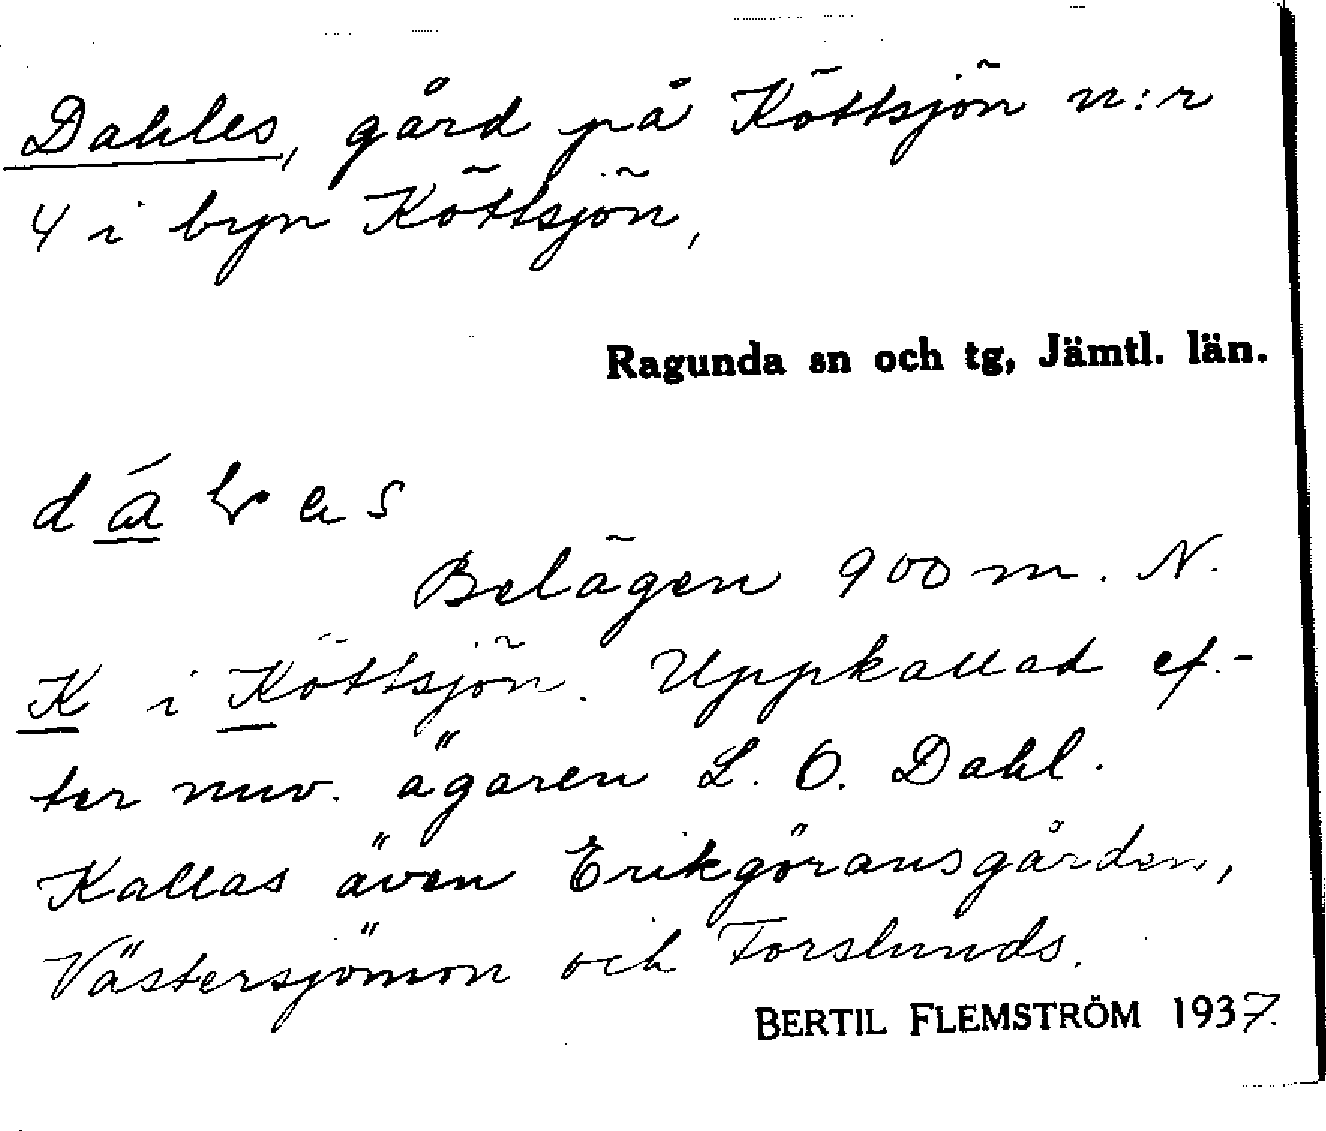 Dahles, gård på Köttsjön n:r
4 i byn Köttsjön,
Ragunda sn och tg, Jämtl. län.
Belägen 900 m. N.
K i Köttsjön. Uppkallad ef-
ter nuv. ägaren L. O. Dahl.
Kallas även Erikgöransgården,
Västersjömon och Forslunds.
BERTIL FLEMSTRÖM 1937.